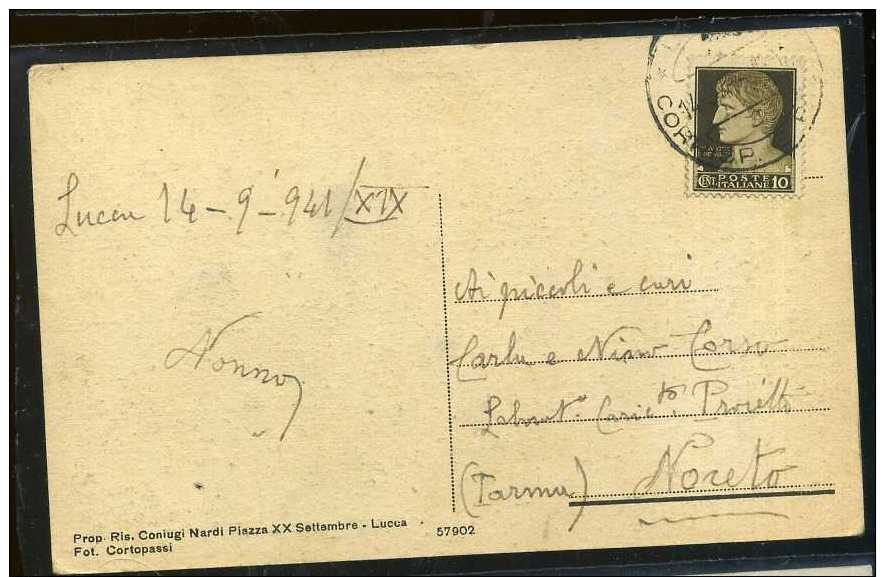 CORRISP.
CENT. POSTE ITALIANE 10
Lucca 14-9-941/XIX
Ai piccoli e cari
Carlo e Nino Corso
Laborat° Caric to Proiett
(Parma) Noceto
Nonno
Prop. Ris. Coniugi Nardi Piazza XX Settembre - Lucca
Fot. Cortopassi
57902